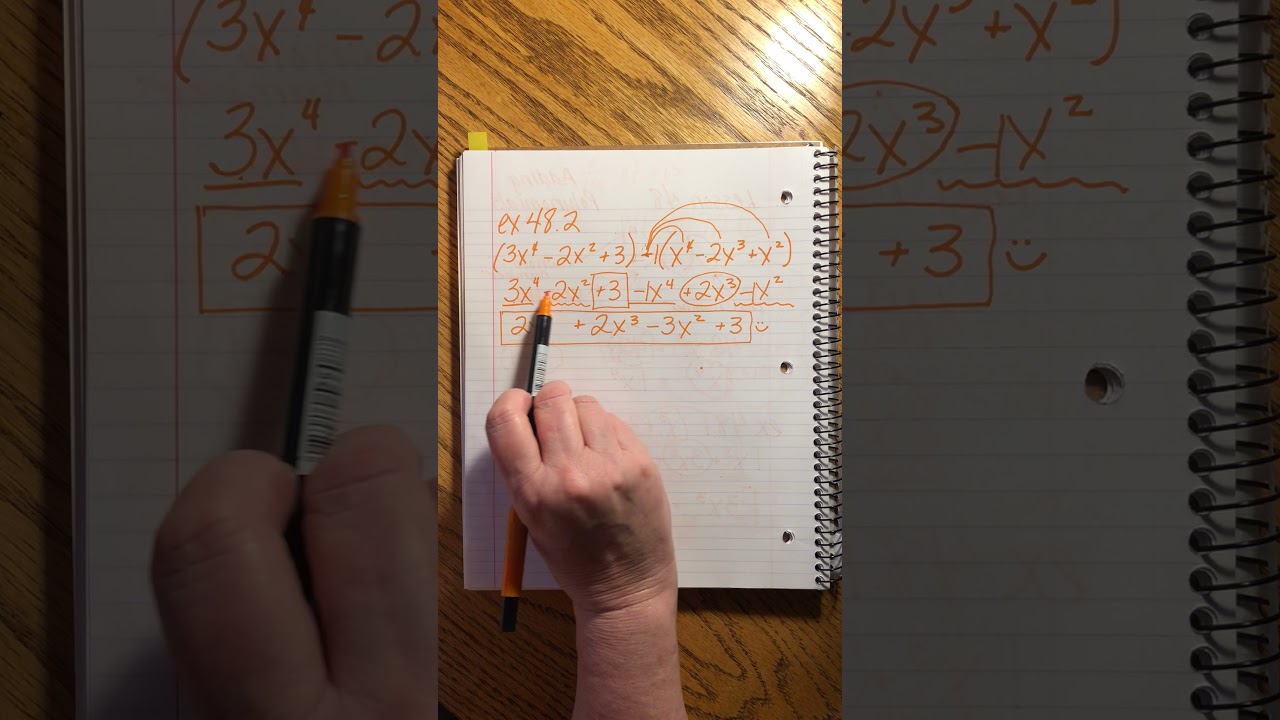 ex 48.2
(3x⁴ - 2x² + 3) - 1(x⁴ - 2x³ + x²)
3x⁴ - 2x² + 3 - 1x⁴ + 2x³ - 1x²
2 + 2x³ - 3x² + 3 :)